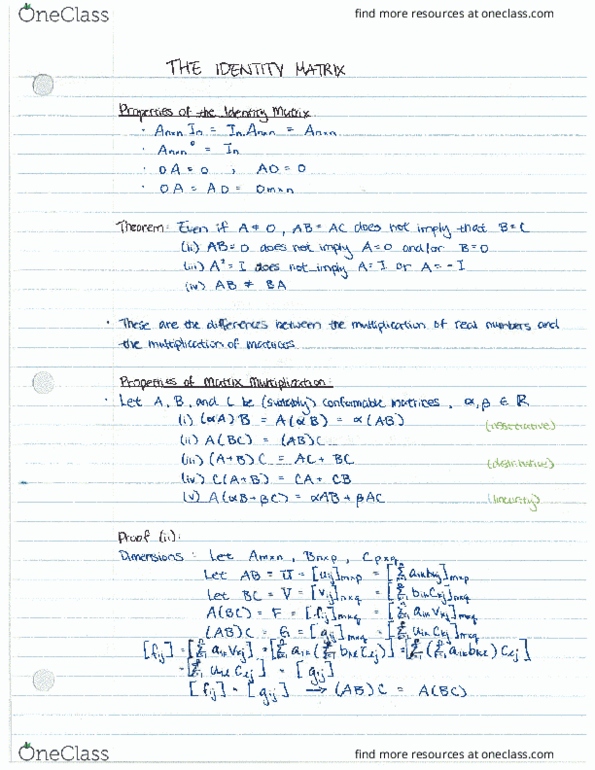 OneClass
find more resources at oneclass.com
THE IDENTITY MATRIX
Properties of the Identity Matrix
· Aₙₓₙ Iₙ = Iₙ Aₙₓₙ = Aₙₓₙ
· Aₙₓₙ⁰ = Iₙ
· 0A = 0 ; A0 = 0
· 0A = A0 = 0ₘₓₙ
Theorem: Even if A ≠ 0, AB = AC does not imply that B = C
(ii) AB = 0 does not imply A = 0 and/or B = 0
(iii) A² = I does not imply A = I or A = - I
(iv) AB ≠ BA
· These are the differences between the multiplication of real numbers and
the multiplication of matrices
Properties of Matrix Multiplication:
· Let A, B, and C be (suitably) conformable matrices, α, β ∈ ℝ
(i) (αA)B = A(αB) = α(AB)
(ii) A(BC) = (AB)C (associative)
(iii) (A+B)C = AC + BC
(iv) C(A+B) = CA + CB (distributive)
(v) A(αB + βC) = αAB + βAC (linearity)
Proof (ii):
Dimensions: Let Aₘₓₙ, Bₙₓₚ, Cₚₓq
Let AB = U = [uᵢⱼ]ₘₓₚ = [Σ aᵢₖbₖⱼ]ₘₓₚ
Let BC = V = [vᵢⱼ]ₙₓq = [Σ bᵢₖcₖⱼ]ₙₓq
A(BC) = F = [fᵢⱼ]ₘₓq = [Σ aᵢₖvₖⱼ]ₘₓq
(AB)C = G = [gᵢⱼ]ₘₓq = [Σ uᵢₖcₖⱼ]ₘₓq
[fᵢⱼ] = [Σ aᵢₖvₖⱼ] = [Σ aᵢₖ(Σ bₖₗcₗⱼ)] = [Σ(Σ aᵢₖbₖₗ)cₗⱼ]
= [Σ uᵢₗcₗⱼ] = [gᵢⱼ]
[fᵢⱼ] = [gᵢⱼ] → (AB)C = A(BC)
OneClass
find more resources at oneclass.com